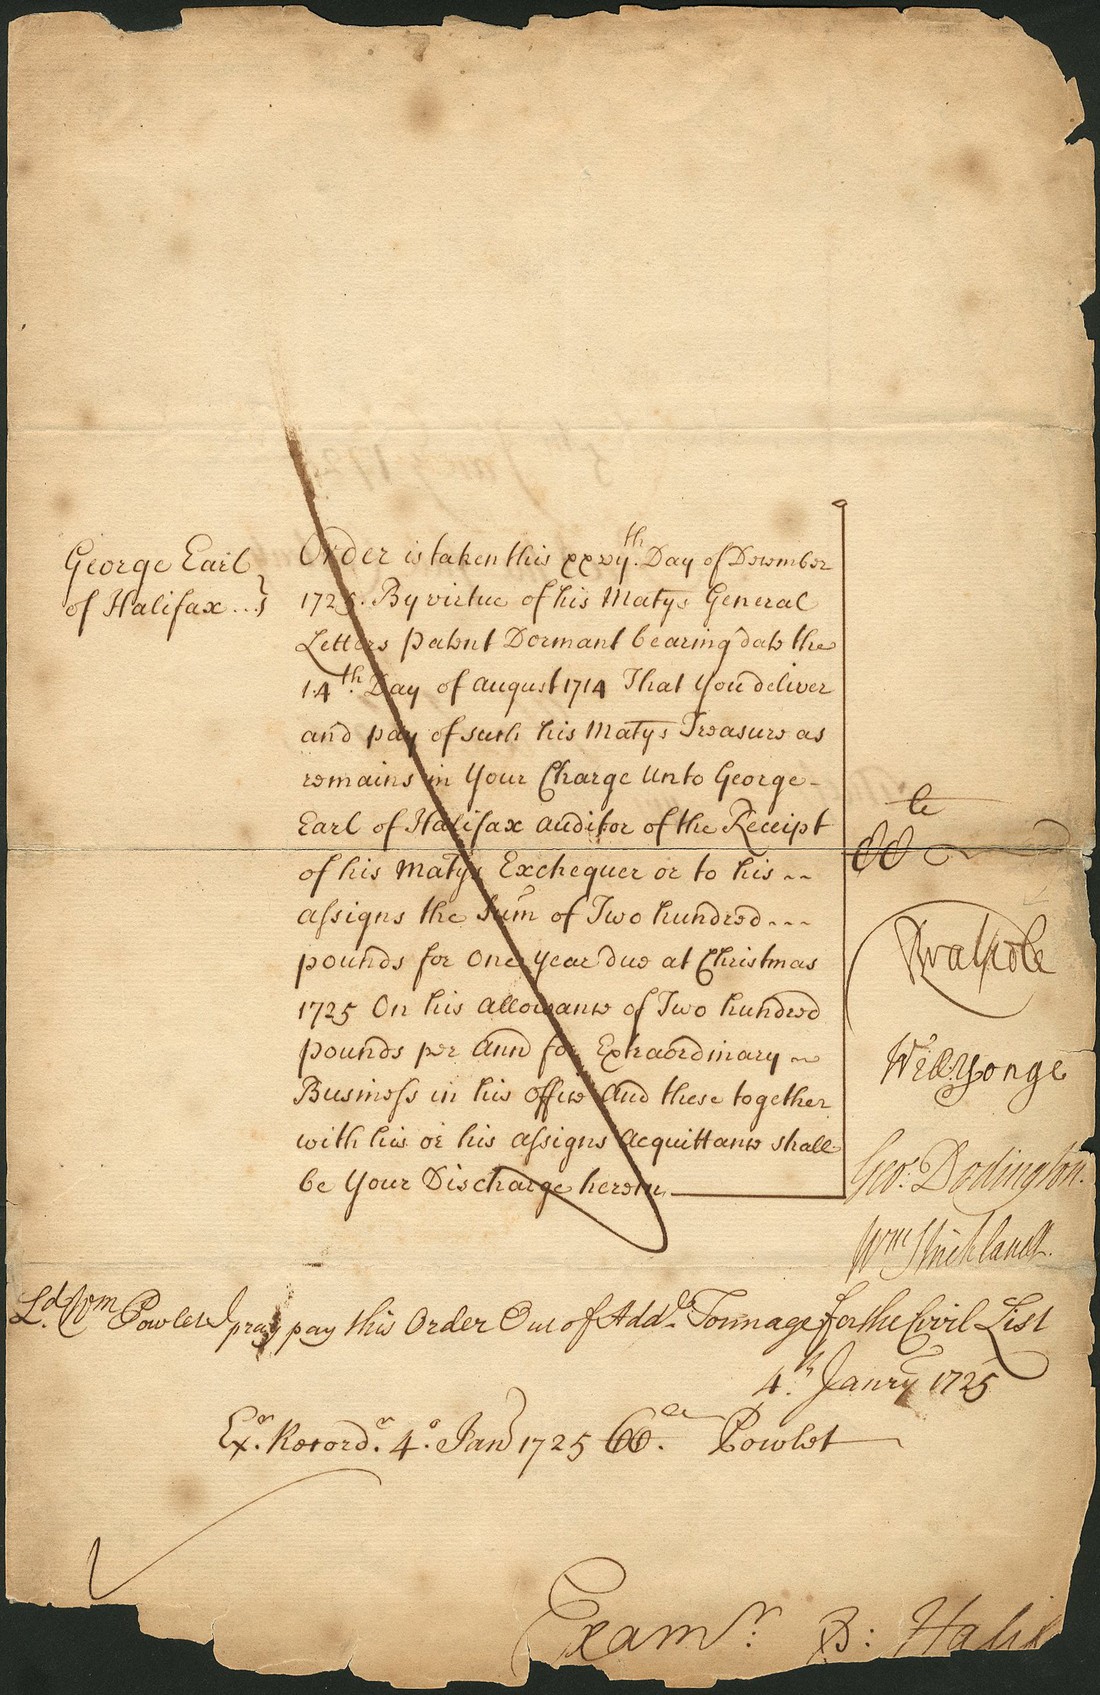 George Earl
of Halifax ...
Order is taken this xxvijth. Day of Decomber
1725. By virtue of his Matys General
Letters patent Dormant bearing date the
14th. Day of August 1714 That You deliver
and pay of such his Matys Treasure as
remains in Your Charge Unto George
Earl of Halifax Auditor of the Receipt
of his Matys Exchequer or to his
assigns the Sum of Two hundred
pounds for One Year due at Christmas
1725 On his Allowance of Two hundred
pounds per Ann for Extraordinary
Business in his office And these together
with his or his assigns Acquittance shall
be Your Discharge herein
CC
RWalpole
Wm Yonge
Geo: Dodington.
Wm Strickland.
Ld. Wm Powlet I pray pay this Order Out of Addl. Tonnage for the Civil List
4th. Janry 1725
Exr. Recordr. 4o. Jan 1725 Powlet
Examr. Halif